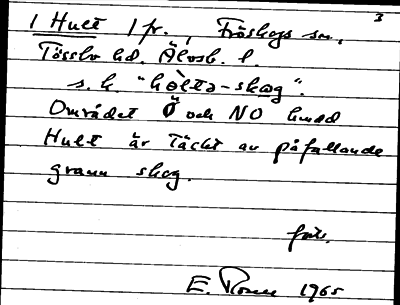 3
1 Hult 1 fr., Fröskogs sn,
Tössbo hd. Älvsb. l.
s. k. "hòlta-skog".
Området Ö och NO
Hult är täckt av påfallande
grann skog.
E. 1965